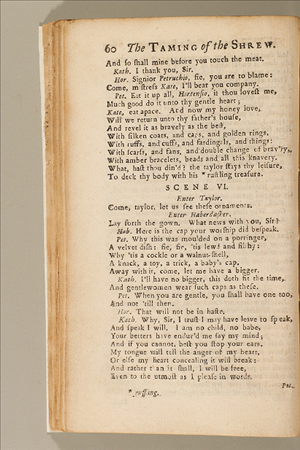 60 The TAMING of the SHREW.
And so ſhall mine before you touch the meat.
Kath. I thank you, Sir.
Hor. Signior Petruchio, fie, you are to blame:
Come, miſtreſs Kate, I'll bear you company,
Pet. Eat it up all, Hortenſio, if thou loveſt me,
Much good do it unto thy gentle heart;
Kate, eat apace. And now my honey love,
Will we return unto thy father's houſe,
And revel it as bravely as the beſt,
With ſilken coats, and caps, and golden rings,
With ruffs, and cuffs, and fardingals, and things:
With ſcarfs, and fans, and double change of brav'ry,
With amber bracelets, beads and all this knavery.
What, haſt thou din'd? the taylor ſtays thy leiſure,
To deck thy body with his * ruſtling treaſure.
SCENE VI.
Enter Taylor.
Come, taylor, let us ſee theſe ornaments.
Enter Haberdaſher.
Lay forth the gown. What news with you, Sir?
Hab. Here is the cap your worſhip did beſpeak.
Pet. Why this was moulded on a porringer,
A velvet diſh; fie, fie, 'tis lewd and filthy:
Why 'tis a cockle or a walnut-ſhell,
A knack, a toy, a trick, a baby's cap,
Away with it, come, let me have a bigger.
Kath. I'll have no bigger, this doth fit the time,
And gentlewomen wear ſuch caps as theſe.
Pet. When you are gentle, you ſhall have one too,
And not 'till then.
Hor. That will not be in haſte.
Kath. Why, Sir, I truſt I may have leave to ſpeak,
And ſpeak I will. I am no child, no babe,
Your betters have endur'd me ſay my mind;
And if you cannot, beſt you ſtop your ears.
My tongue will tell the anger of my heart,
Or elſe my heart concealing it will break:
And rather than it ſhall, I will be free,
Even to the utmoſt as I pleaſe in words.
Pet.